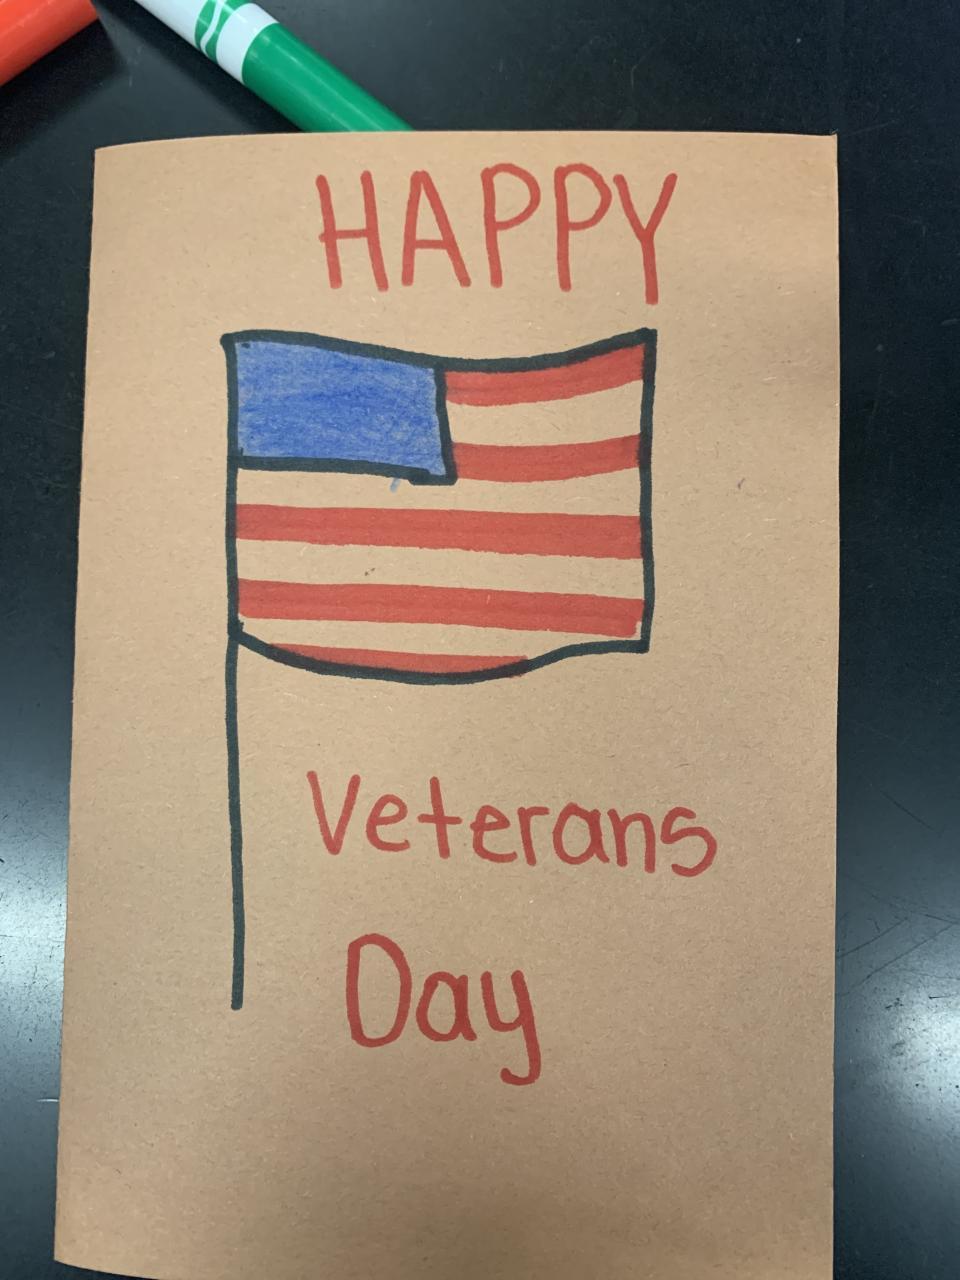 HAPPY
Veterans
Day